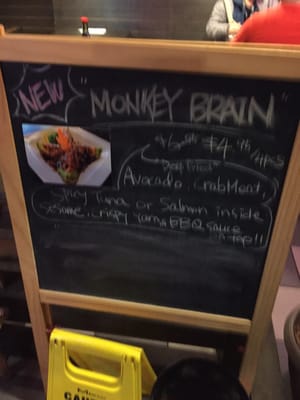 NEW "MONKEY BRAIN"
$4
Deep Fried
Avocado, CrabMeat,
Spicy Tuna or Salmon inside
Sesame, crispy yam, BBQ sauce
on top!!